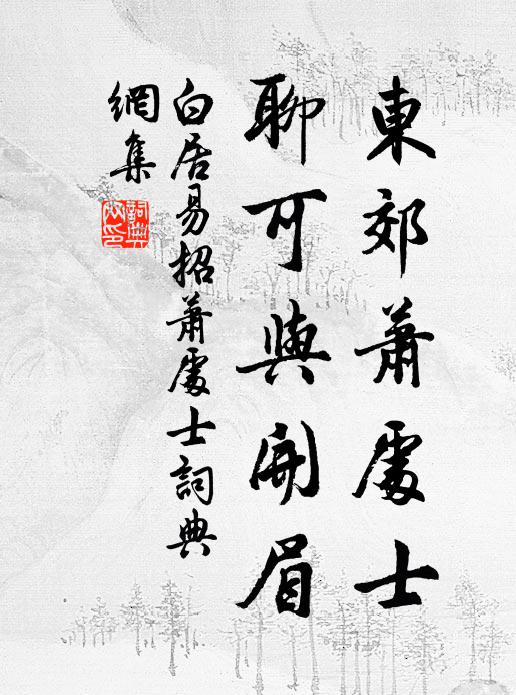 東郊蕭處士
聊可與開眉
白居易招蕭處士詞典
網集
詞典網印